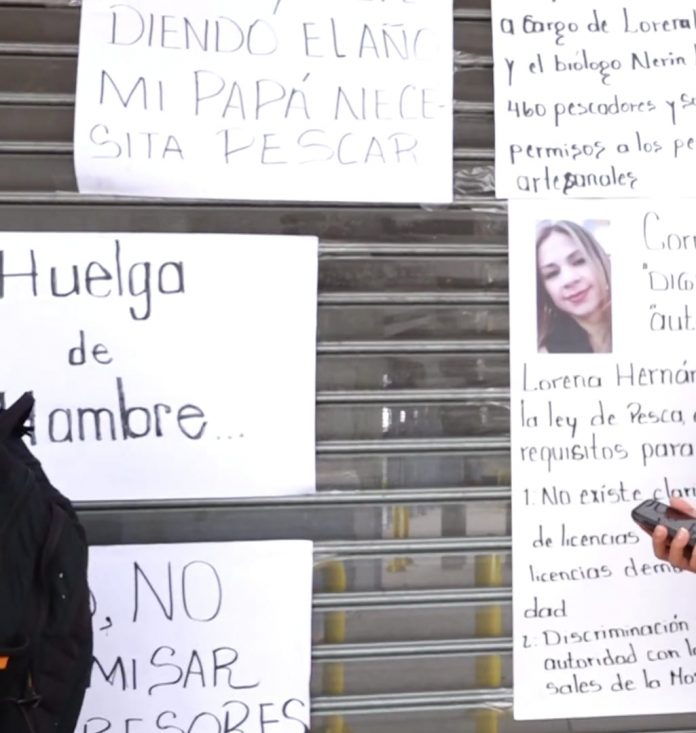 DIENDO EL AÑO
MI PAPÁ NECE-
SITA PESCAR
a Cargo de Lorena
Y el biólogo Nerin
460 pescadores y
permisos a los
artesanales
Huelga
de
Hambre...
, NO
MISAR
RESORES
"DIG
"aut
Lorena
la ley de Pesca,
requisitos para
1: No existe
de licencias
licencias
dad
2: Discriminación
autoridad con
sales de la